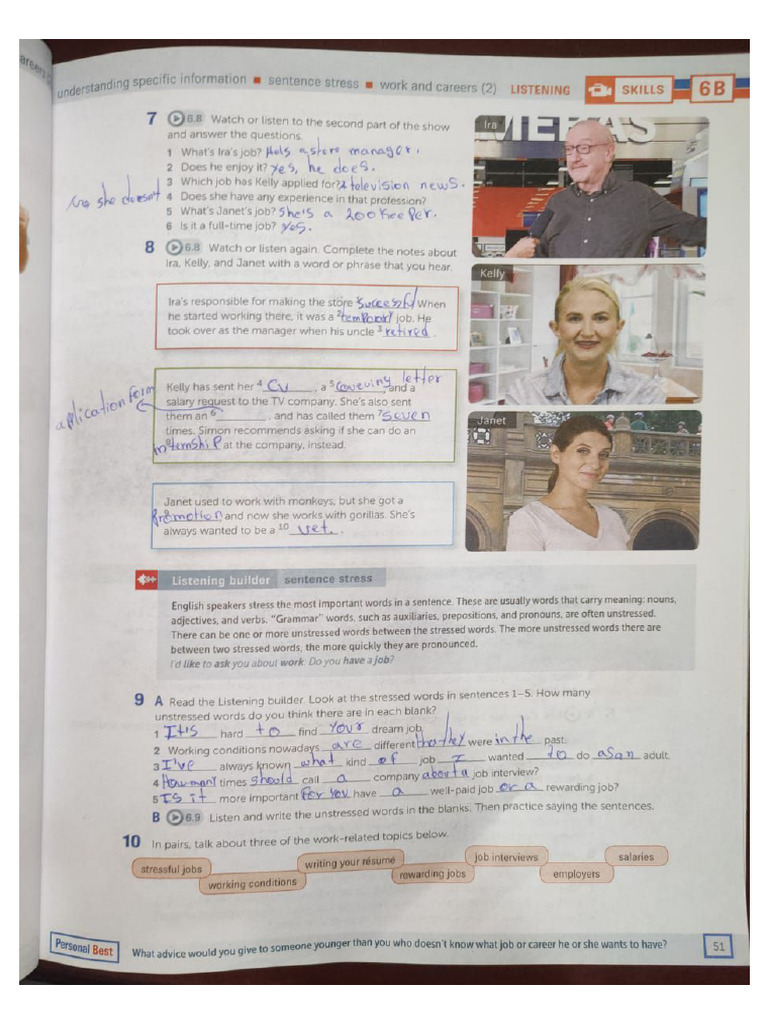 understanding specific information ■ sentence stress ■ work and careers (2) LISTENING SKILLS 6B
7 6.8 Watch or listen to the second part of the show
and answer the questions.
1 What's Ira's job? He's a store manager.
2 Does he enjoy it? yes, he does.
3 Which job has Kelly applied for? television news.
no she doesn't 4 Does she have any experience in that profession?
5 What's Janet's job? She's a zookeeper.
6 Is it a full-time job? yes.
8 6.8 Watch or listen again. Complete the notes about
Ira, Kelly, and Janet with a word or phrase that you hear.
Ira's responsible for making the store 1 successful. When
he started working there, it was a 2 temporary job. He
took over as the manager when his uncle 3 retired.
application form
Kelly has sent her 4 CV, a 5 covering letter and a
salary request to the TV company. She's also sent
them an 6 ____, and has called them 7 seven
times. Simon recommends asking if she can do an
8 internship at the company, instead.
Janet used to work with monkeys, but she got a
9 promotion and now she works with gorillas. She's
always wanted to be a 10 vet.
Ira
Kelly
Janet
Listening builder sentence stress
English speakers stress the most important words in a sentence. These are usually words that carry meaning: nouns,
adjectives, and verbs. "Grammar" words, such as auxiliaries, prepositions, and pronouns, are often unstressed.
There can be one or more unstressed words between the stressed words. The more unstressed words there are
between two stressed words, the more quickly they are pronounced.
I'd like to ask you about work. Do you have a job?
9 A Read the Listening builder. Look at the stressed words in sentences 1–5. How many
unstressed words do you think there are in each blank?
1 It's hard to find your dream job.
2 Working conditions nowadays are different than they were in the past.
3 I've always known what kind of job I wanted to do as an adult.
4 How many times should call a company about a job interview?
5 Is it more important for you have a well-paid job or a rewarding job?
B 6.9 Listen and write the unstressed words in the blanks. Then practice saying the sentences.
10 In pairs, talk about three of the work-related topics below.
stressful jobs
working conditions
writing your résumé
rewarding jobs
job interviews
employers
salaries
Personal Best What advice would you give to someone younger than you who doesn't know what job or career he or she wants to have? 51